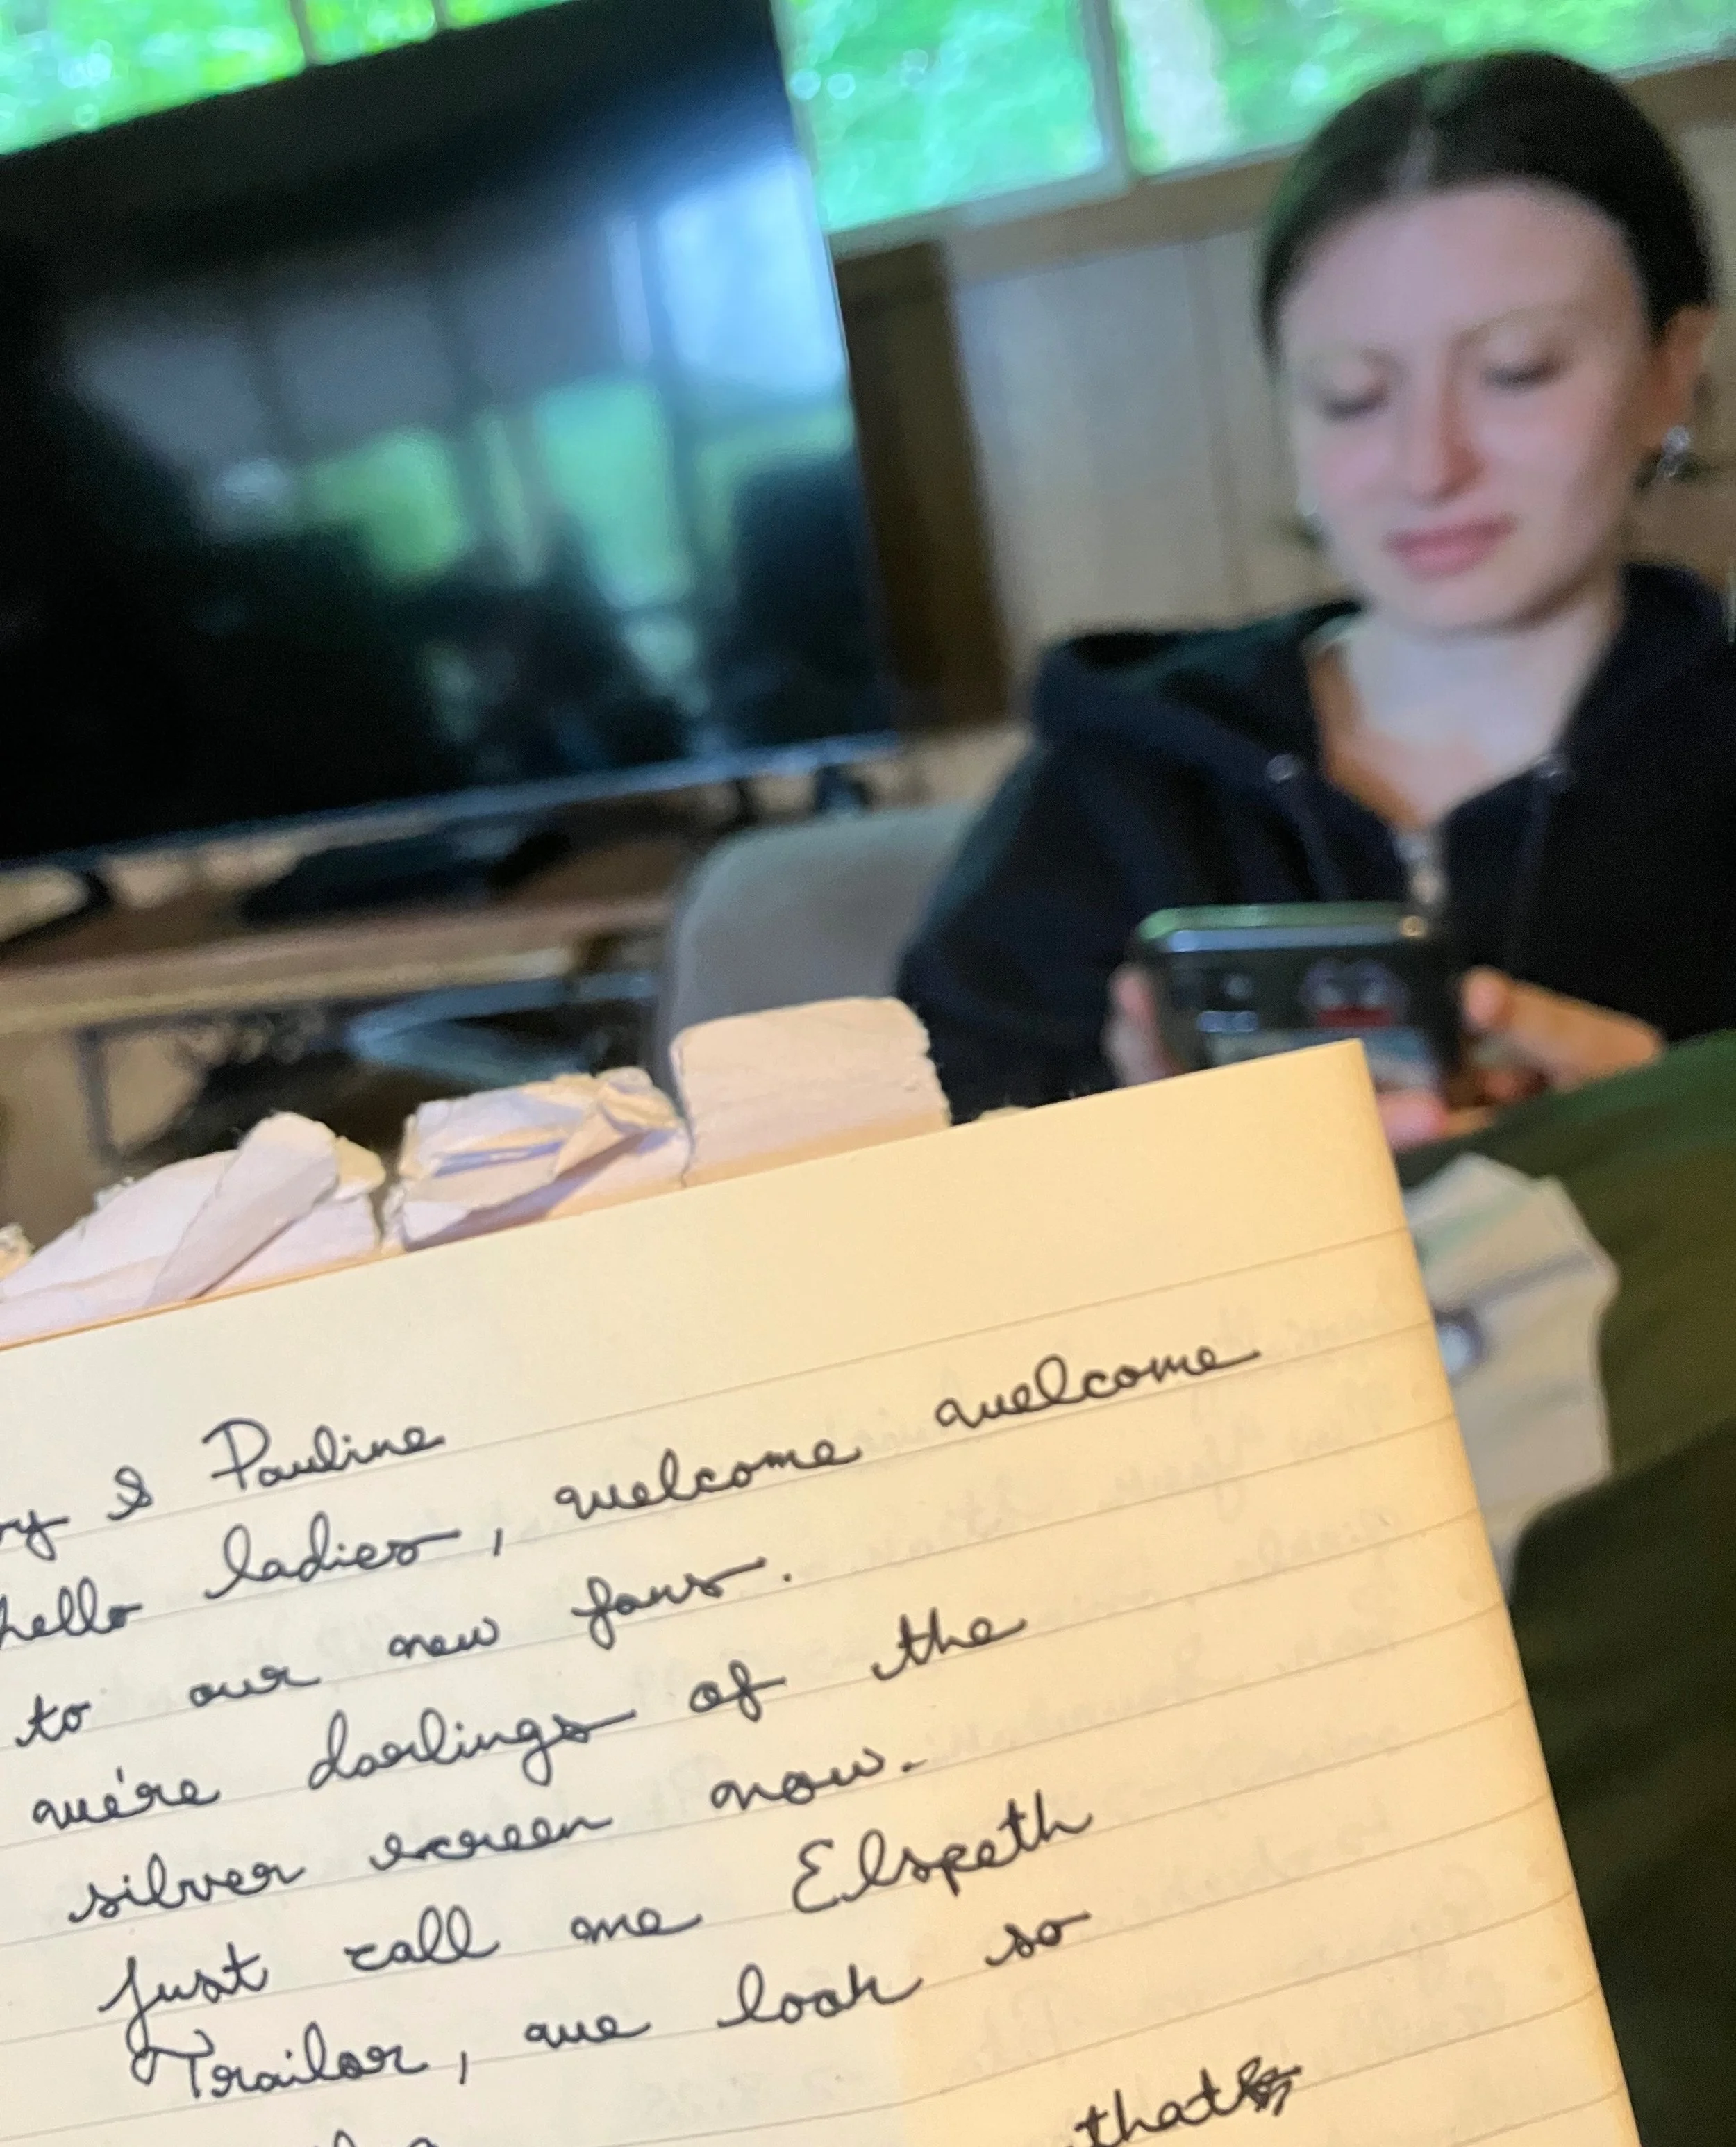 & Pauline
hello ladies, welcome welcome
to our new fans.
we're darlings of the
silver screen now.
just call me Elspeth
Trailor, we look so
that